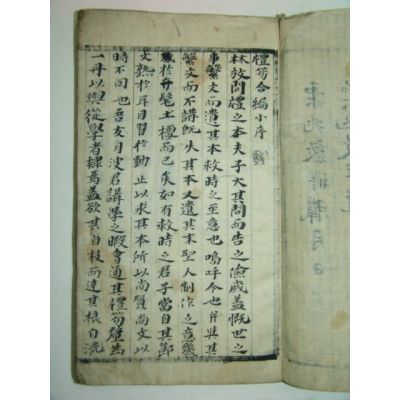 禮笏合編小序
林放問禮之本夫子大其問而告之儉戚盖慨世之
事繁文而遺其本救時之至意也嗚呼今也并與其
繁文而不講旣失其本又遺其末聖人制作之意幾
於弁髦土梗而已矣如有救時之君子當自其鄭
文熟於耳目習於動止以求其本所以尚質尚文以
時不同也吾友月波君講學之暇會通其禮笏釐爲
一冊以與從學者隷焉盖欲其自枝而達其根自流